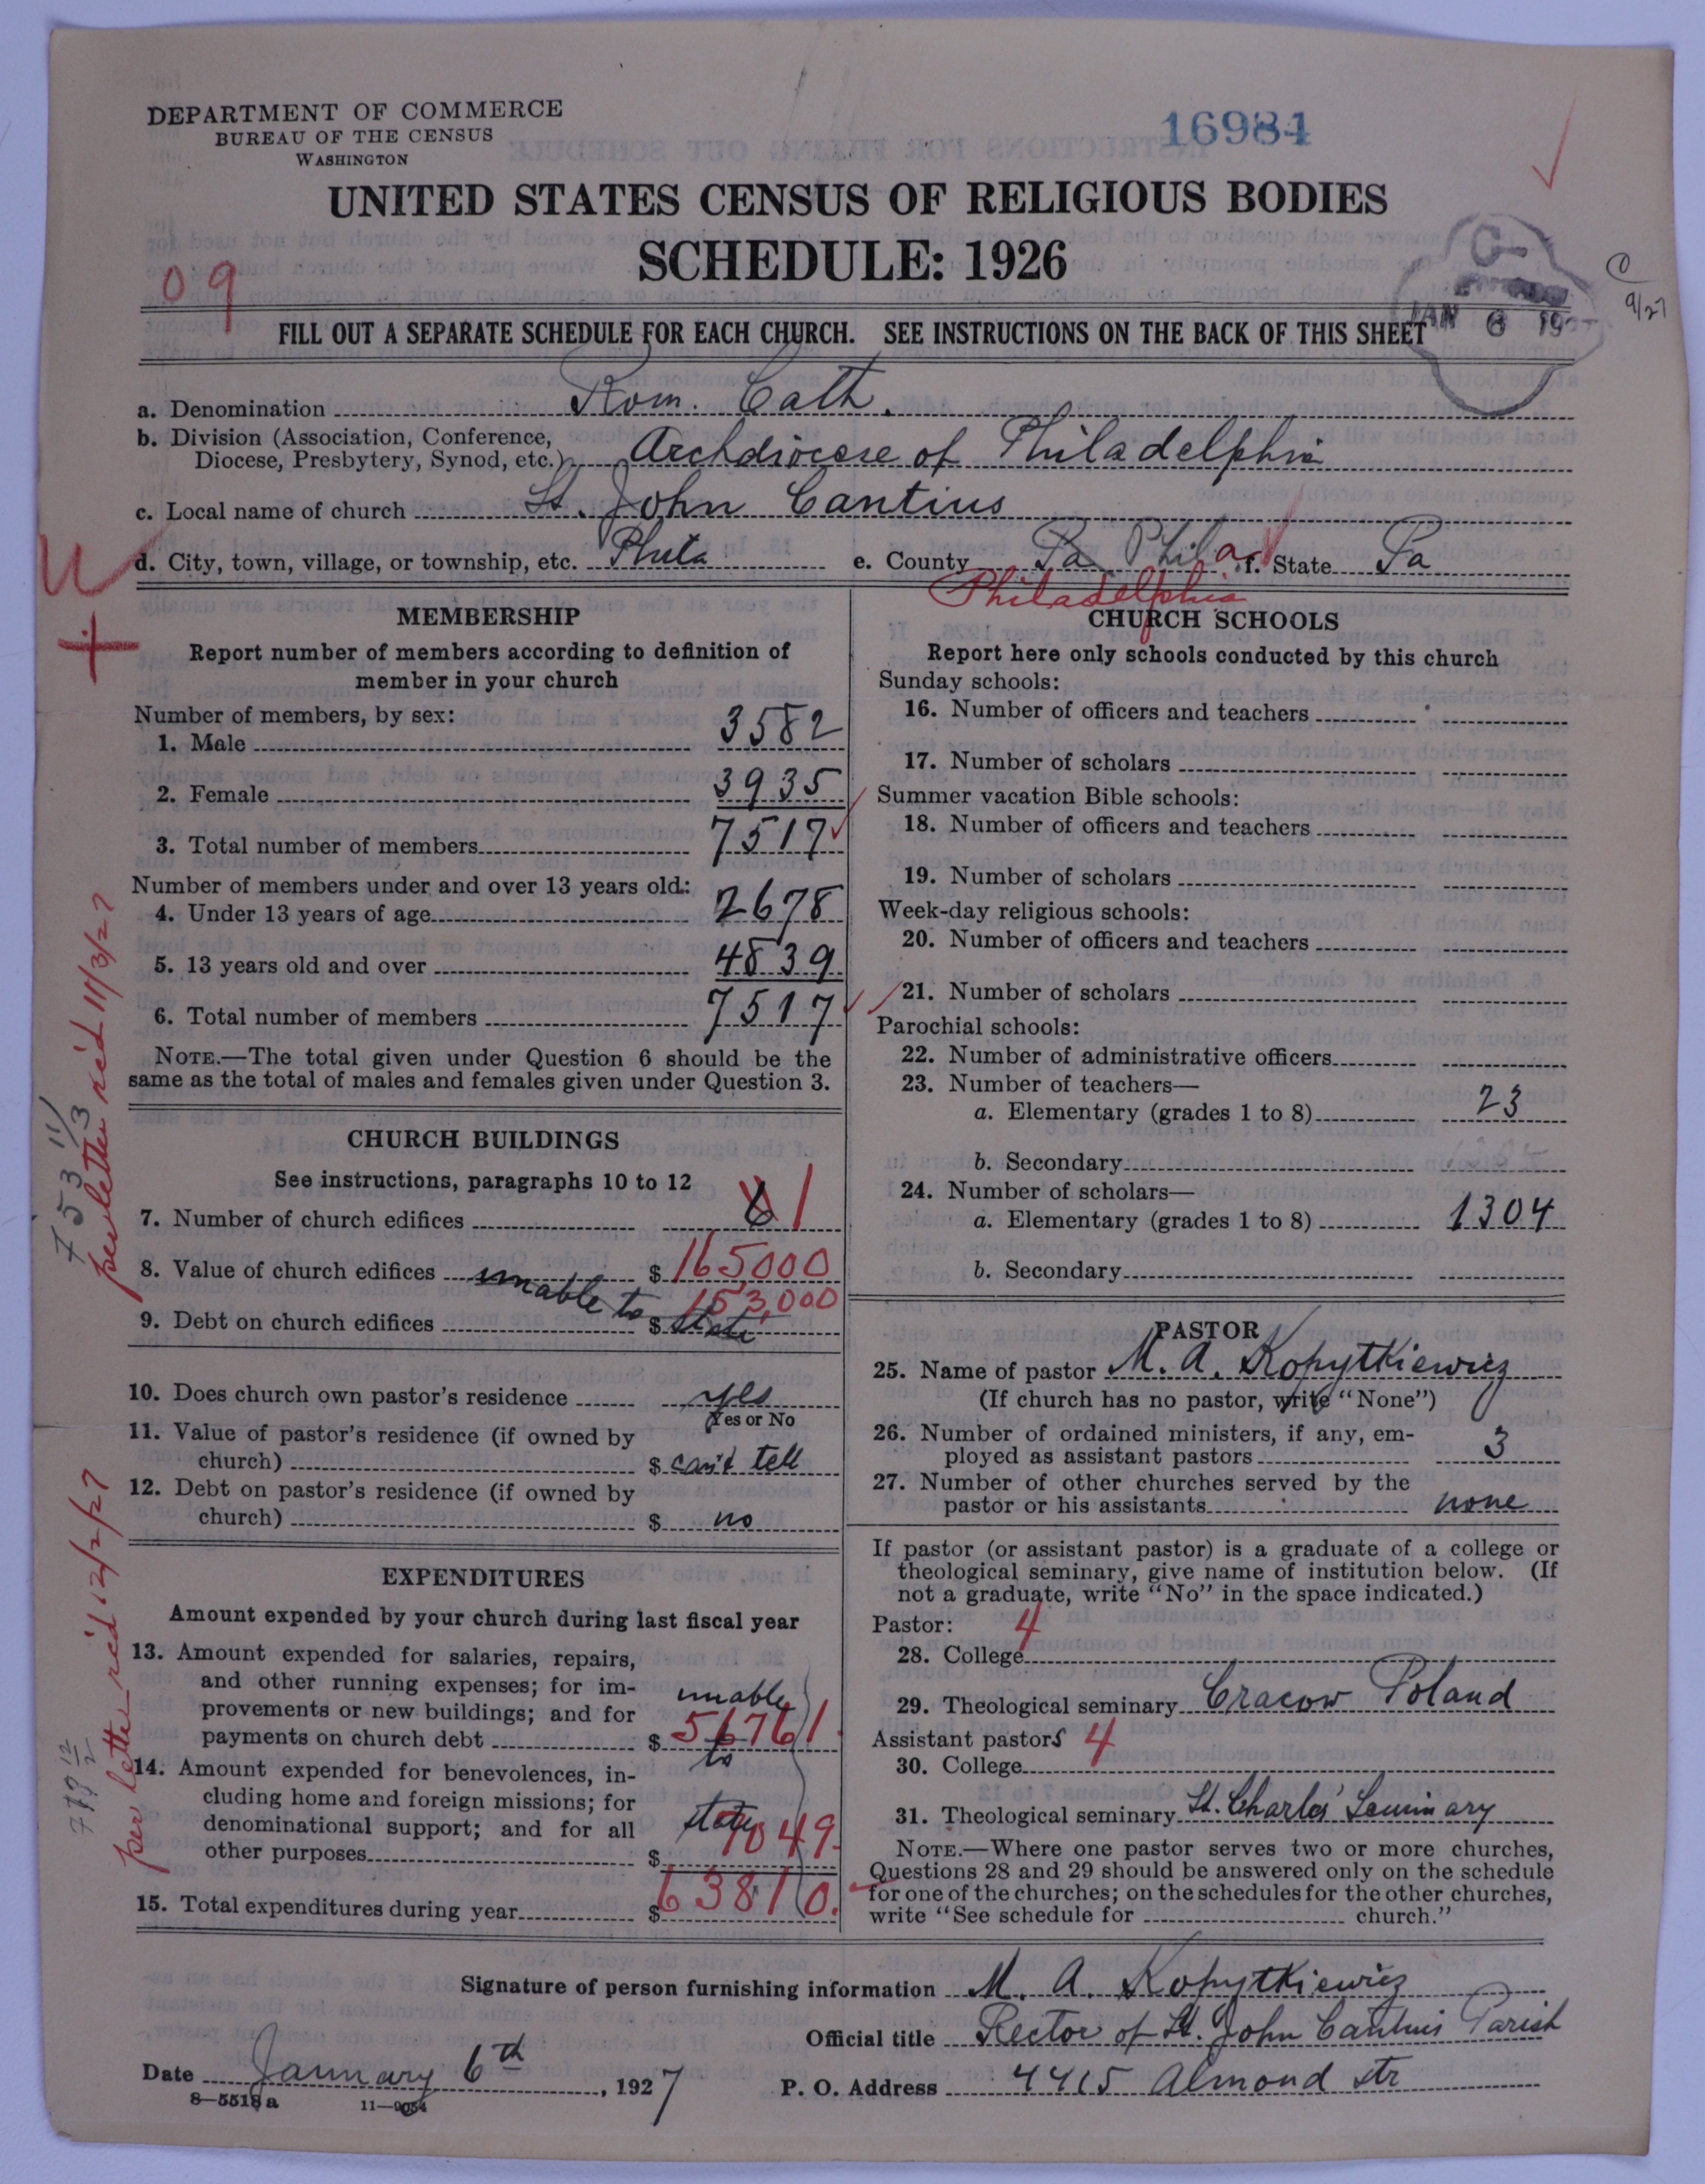 DEPARTMENT OF COMMERCE
BUREAU OF THE CENSUS
WASHINGTON
16984
UNITED STATES CENSUS OF RELIGIOUS BODIES
SCHEDULE: 1926
09
C-
JAN 6 19
9/27
FILL OUT A SEPARATE SCHEDULE FOR EACH CHURCH. SEE INSTRUCTIONS ON THE BACK OF THIS SHEET
a. Denomination Rom. Cath.
b. Division (Association, Conference, Diocese, Presbytery, Synod, etc.) Archdiocese of Philadelphia
c. Local name of church St. John Cantius
d. City, town, village, or township, etc. Phila e. County Pa Phila f. State Pa
Philadelphia
MEMBERSHIP
Report number of members according to definition of
member in your church
Number of members, by sex:
1. Male 3582
2. Female 3935
3. Total number of members 7517
Number of members under and over 13 years old:
4. Under 13 years of age 2678
5. 13 years old and over 4839
6. Total number of members 7517
NOTE.—The total given under Question 6 should be the
same as the total of males and females given under Question 3.
CHURCH BUILDINGS
See instructions, paragraphs 10 to 12
7. Number of church edifices 6 1
8. Value of church edifices unable to $ 165000
153,000
9. Debt on church edifices $ state
10. Does church own pastor's residence yes
Yes or No
11. Value of pastor's residence (if owned by
church) $ can't tell
12. Debt on pastor's residence (if owned by
church) $ no
EXPENDITURES
Amount expended by your church during last fiscal year
13. Amount expended for salaries, repairs,
and other running expenses; for im-
provements or new buildings; and for unable
payments on church debt $ 56761
to
14. Amount expended for benevolences, in-
cluding home and foreign missions; for
denominational support; and for all state
other purposes $ 7049
15. Total expenditures during year $ 63810.
per letter rec'd 11/3/27
753 11/3
per letter rec'd 12/2/27
12/2
CHURCH SCHOOLS
Report here only schools conducted by this church
Sunday schools:
16. Number of officers and teachers
17. Number of scholars
Summer vacation Bible schools:
18. Number of officers and teachers
19. Number of scholars
Week-day religious schools:
20. Number of officers and teachers
21. Number of scholars
Parochial schools:
22. Number of administrative officers
23. Number of teachers—
a. Elementary (grades 1 to 8) 23
b. Secondary
24. Number of scholars—
a. Elementary (grades 1 to 8) 1304
b. Secondary
PASTOR
25. Name of pastor M. A. Kopytkiewicz
(If church has no pastor, write "None")
26. Number of ordained ministers, if any, em-
ployed as assistant pastors 3
27. Number of other churches served by the
pastor or his assistants none
If pastor (or assistant pastor) is a graduate of a college or
theological seminary, give name of institution below. (If
not a graduate, write "No" in the space indicated.)
Pastor: 4
28. College
29. Theological seminary Cracow Poland
Assistant pastors 4
30. College
31. Theological seminary St. Charles' Seminary
NOTE.—Where one pastor serves two or more churches,
Questions 28 and 29 should be answered only on the schedule
for one of the churches; on the schedules for the other churches,
write "See schedule for church."
Signature of person furnishing information M. A. Kopytkiewicz
Official title Rector of St. John Cantius Parish
Date January 6th, 1927 P. O. Address 4415 Almond str
8—5518 a 11—9054